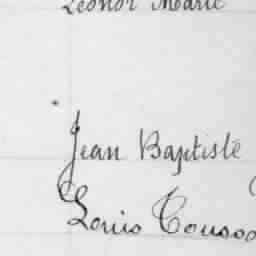 Léonor Marie
Jean Baptiste
Louis